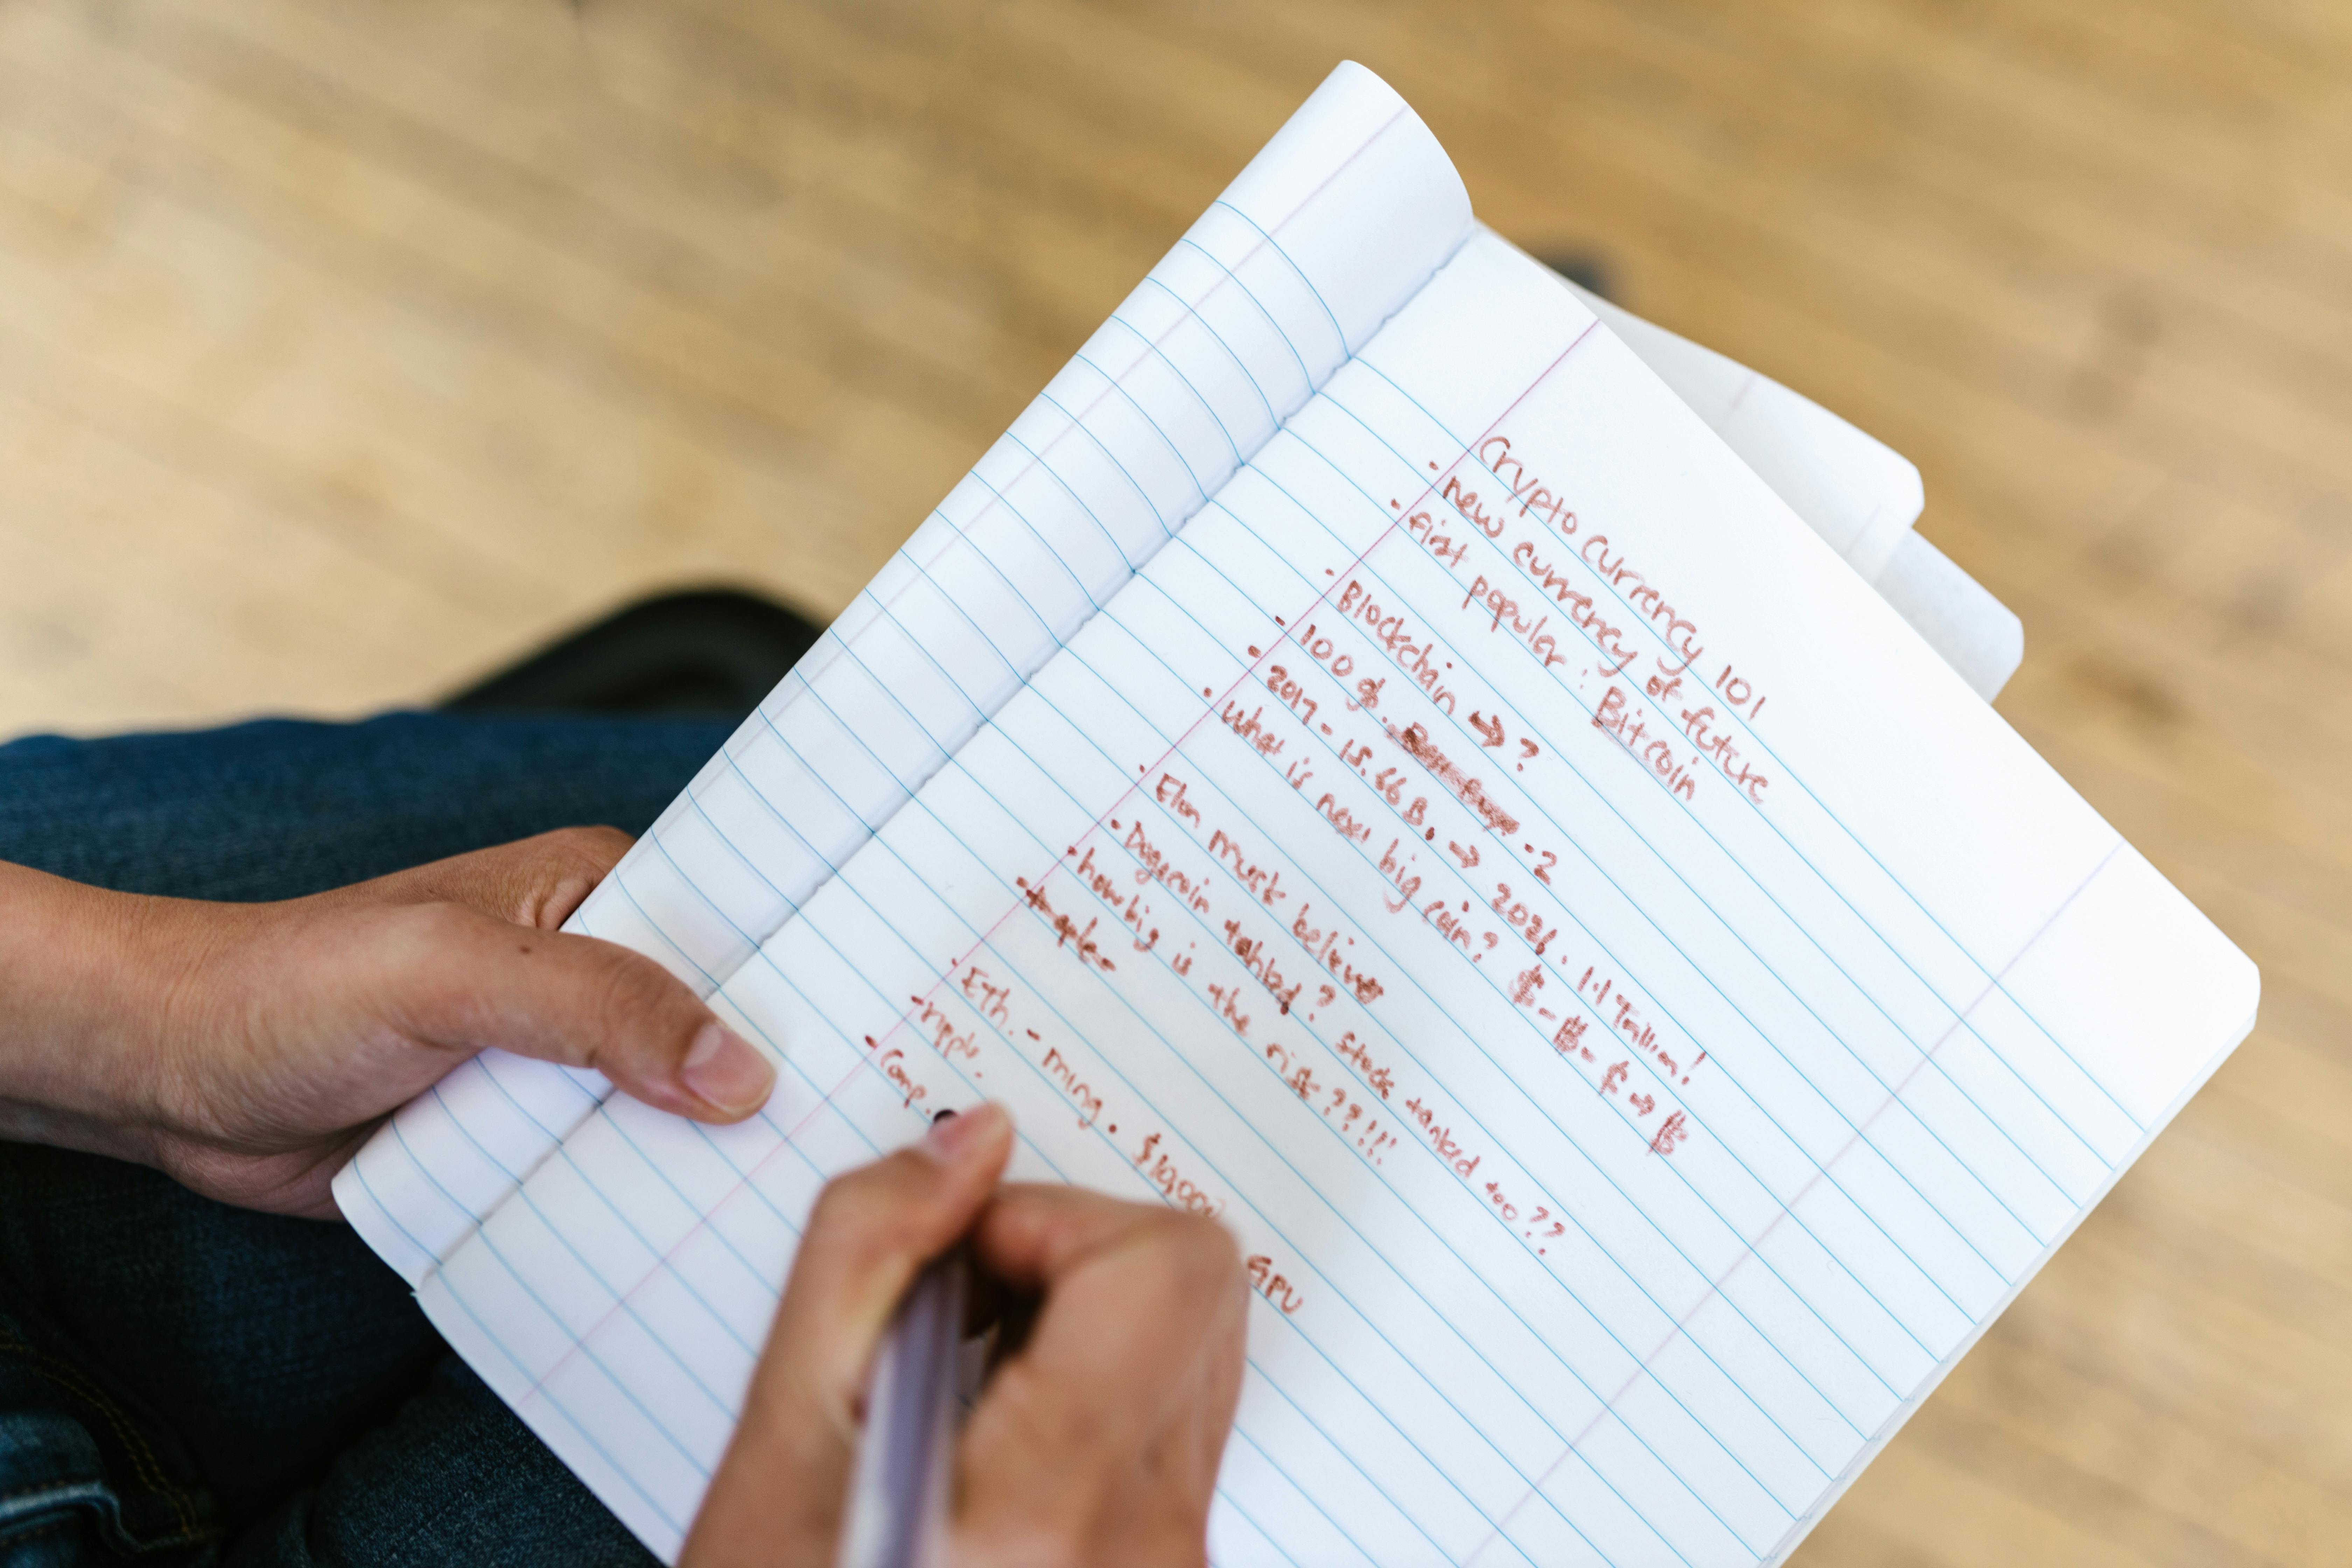 Crypto Currency 101
· new currency of future
· first popular : Bitcoin
· Blockchain → ?
· 100 · 2
· 2017 - 15.66 B. → 2021. 1.1 Trillion!
· what is next big coin? $ - ₿ - € → ₿
· Elon musk believes
· Dogecoin tanked? Stock tanked too??
· how big is the risk ??!!!
· Eth. - ming. $10,000 GPU
· ripple.
· Comp.